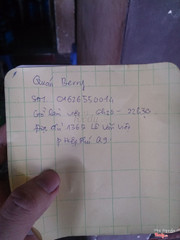 Quán Berry
SĐT 01626550014
Giờ làm việc 6h30 - 22h30
Địa chỉ 1365 Lê Văn Việt
P Hiệp Phú Q9